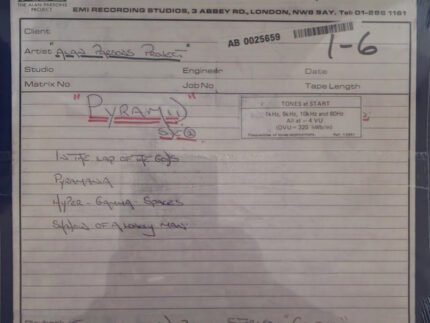 THE ALAN PARSONS
PROJECT
EMI RECORDING STUDIOS, 3 ABBEY RD., LONDON, NW8 9AY. Tel: 01-286 1161
Client
AB 0025659
1-6
Artist "ALAN PARSONS PROJECT"
Studio Engineer Date
Matrix No Job No Tape Length
"PYRAMID"
S/C 2
TONES at START
1kHz, 5kHz, 10kHz and 60Hz
All at - 4 VU
(OVU = 320 nWb/m)
IN THE LAP OF THE GODS
PYRAMANIA
HYPER-GAMMA-SPACES
S/ADOW OF A LONELY MAN